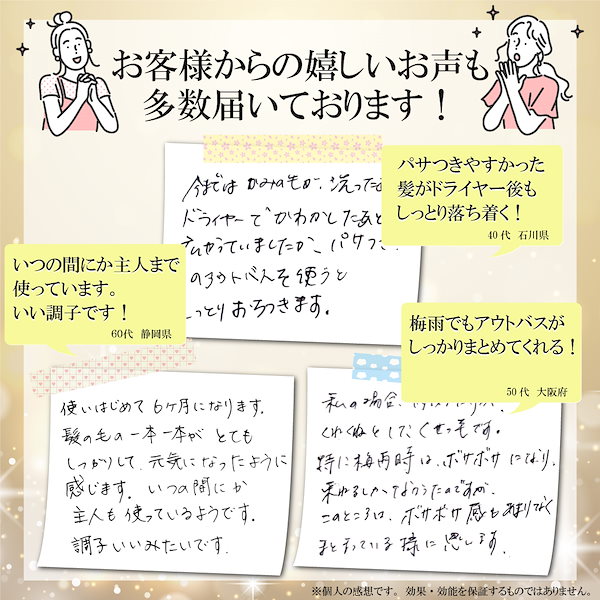 お客様からの嬉しいお声も
多数届いております！
パサつきやすかった
髪がドライヤー後も
しっとり落ち着く！
40代 石川県
今までは かみのもが、洗ったあ
ドライヤーでかわかしたあと
ひろがっていましたが、パサつき
のアウトバスを使うと
しっとりおちつきます。
いつの間にか主人まで
使っています。
いい調子です！
60代 静岡県
梅雨でもアウトバスが
しっかりまとめてくれる！
50代 大阪府
使いはじめて 6ヶ月になります。
髪の毛の一本一本が とても
しっかりして、元気になったように
感じます。いつの間にか
主人も使っているようです。
調子いいみたいです。
私の場合、
くねくねとした、くせっ毛です。
特に梅雨時は、ボサボサになり、
束ねるしかなかったのですが、
このところは、ボサボサ感もあまりなく
まとまっている様に思います。
※個人の感想です。効果・効能を保証するものではありません。